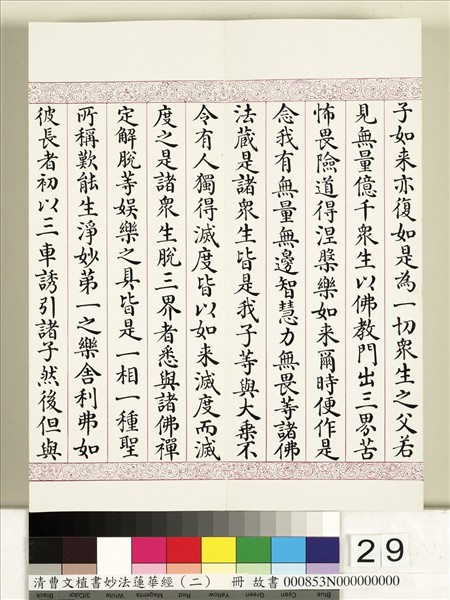 子如来亦復如是為一切衆生之父若
見無量億千衆生以佛教門出三界苦
怖畏險道得涅槃樂如来爾時便作是
念我有無量無邊智慧力無畏等諸佛
法蔵是諸衆生皆是我子等與大乗不
令有人獨得滅度皆以如来滅度而滅
度之是諸衆生脫三界者悉與諸佛禪
定解脫等娛樂之具皆是一相一種聖
所稱歎能生淨妙第一之樂舎利弗如
彼長者初以三車誘引諸子然後但與
29
Black 3/Color White Magenta Red Yellow Green Cyan Blue
清曹文植書妙法蓮華經（二） 冊 故書 000853N000000000